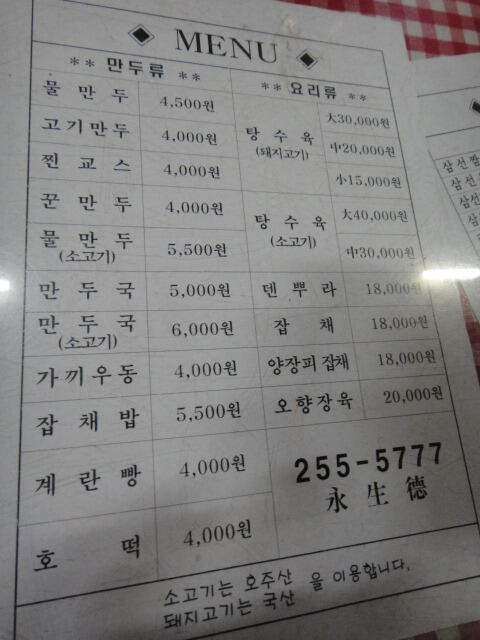 ◈ MENU ◈
** 만두류 **
물만두 4,500원
고기만두 4,000원
찐교스 4,000원
꾼만두 4,000원
물만두 (소고기) 5,500원
만두국 5,000원
만두국 (소고기) 6,000원
가끼우동 4,000원
잡채밥 5,500원
계란빵 4,000원
호떡 4,000원
** 요리류 **
탕수육 (돼지고기) 大30,000원
中20,000원
小15,000원
탕수육 (소고기) 大40,000원
中30,000원
덴뿌라 18,000원
잡채 18,000원
양장피잡채 18,000원
오향장육 20,000원
255-5777
永生德
소고기는 호주산
돼지고기는 국산 을 이용합니다.
삼선짬
삼선
삼선